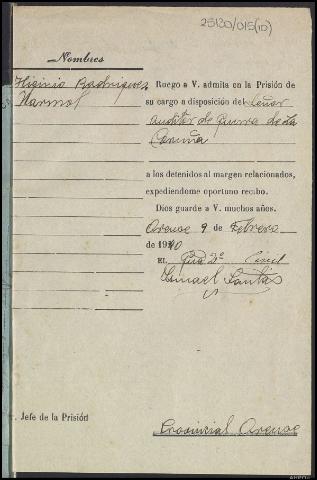 25120/015(10)
Nombres
Higinio Rodriguez
Marmol
Ruego a V. admita en la Prisión de
su cargo a disposición del Señor
Auditor de Guerra de La
Coruña
a los detenidos al margen relacionados,
expediendome oportuno recibo.
Dios guarde a V. muchos años.
Orense 9 de Febrero
de 1940
EL
Civil
Ismael
. Jefe de la Prisión
Provincial Orense